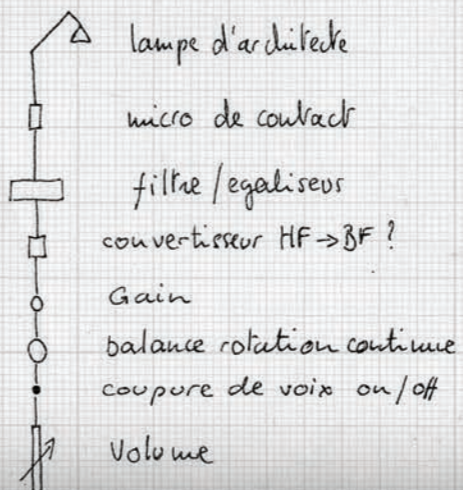 lampe d'architecte
micro de contact
filtre/egaliseur
convertisseur HF→BF ?
Gain
balance rotation continue
coupure de voix on/off
Volume